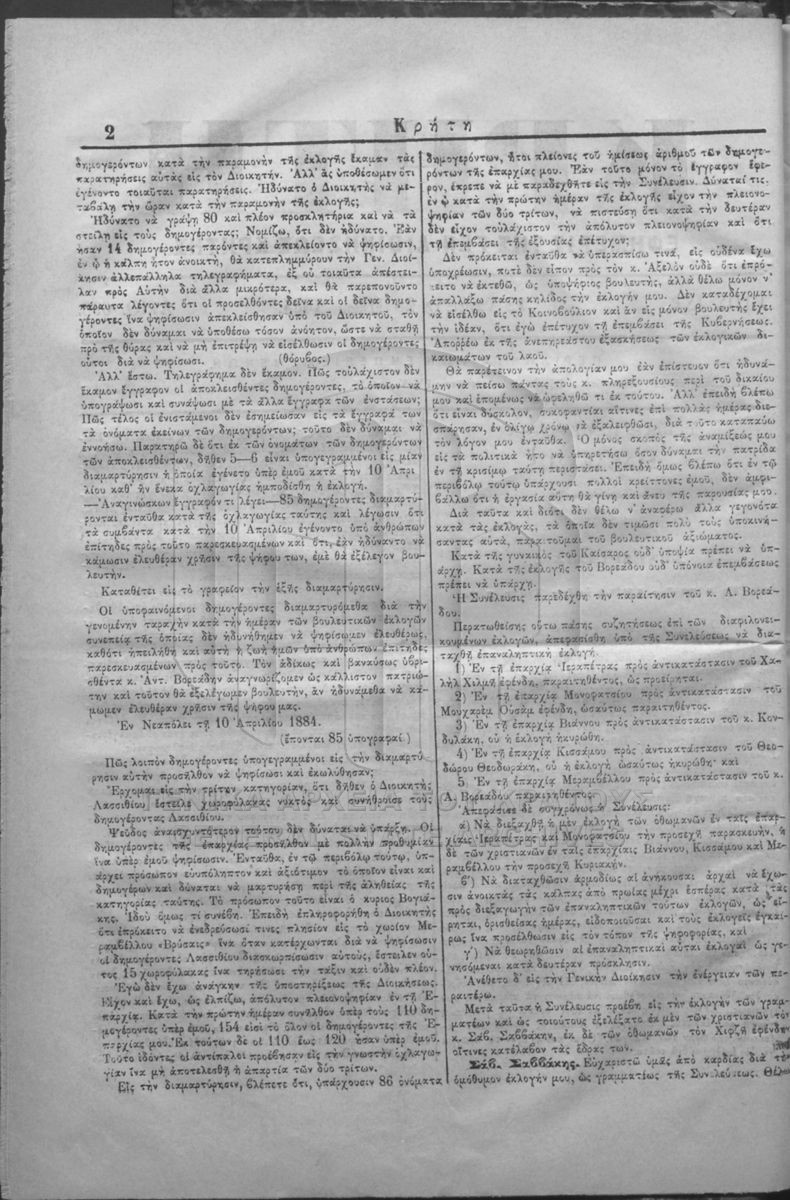 2
Κρήτη
δημογερόντων κατὰ τὴν παραμονὴν τῆς ἐκλογῆς ἔκαμαν τὰς
παρατηρήσεις αὐτὰς εἰς τὸν Διοικητήν. Ἀλλ' ἂς ὑποθέσωμεν ὅτι
ἐγένοντο τοιαῦται παρατηρήσεις. Ἠδύνατο ὁ Διοικητὴς νὰ με-
ταβάλῃ τὴν ὥραν κατὰ τὴν παραμονὴν τῆς ἐκλογῆς;
Ἠδύνατο νὰ γράψῃ 80 καὶ πλέον προσκλητήρια καὶ νὰ τὰ
στείλῃ εἰς τοὺς δημογέροντας; Νομίζω, ὅτι δὲν ἠδύνατο. Ἐὰν
ἦσαν 14 δημογέροντες παρόντες καὶ ἀπεκλείοντο νὰ ψηφίσωσιν,
ἐν ᾧ ἡ κάλπη ἦτον ἀνοικτὴ, θὰ κατεπλημμύρουν τὴν Γεν. Διοί-
κησιν ἀλλεπάλληλα τηλεγραφήματα, ἐξ οὗ τοιαῦτα ἀπέστει-
λαν πρὸς Αὐτὴν διὰ ἄλλα μικρότερα, καὶ θὰ παρεπονοῦντο
πάραυτα λέγοντες ὅτι οἱ προσελθόντες δεῖνα καὶ οἱ δεῖνα δημο-
γέροντες ἵνα ψηφίσωσιν ἀπεκλείσθησαν ὑπὸ τοῦ Διοικητοῦ, τὸν
ὁποῖον δὲν δύναμαι νὰ ὑποθέσω τόσον ἀνόητον, ὥστε νὰ σταθῇ
πρὸ τῆς θύρας καὶ νὰ μὴ ἐπιτρέψῃ νὰ εἰσέλθωσιν οἱ δημογέροντες
οὗτοι διὰ νὰ ψηφίσωσι. (θόρυβος.)
Ἀλλ' ἔστω. Τηλεγράφημα δὲν ἔκαμον. Πῶς τοὐλάχιστον δὲν
ἔκαμον ἔγγραφον οἱ ἀποκλεισθέντες δημογέροντες, τὸ ὁποῖον νὰ
ὑπογράψωσι καὶ συνάψωσι μὲ τὰ ἄλλα ἔγγραφα τῶν ἐνστάσεων;
Πῶς τέλος οἱ ἐνιστάμενοι δὲν ἐσημείωσαν εἰς τὰ ἔγγραφά των
τὰ ὀνόματα ἐκείνων τῶν δημογερόντων; τοῦτο δὲν δύναμαι νὰ
ἐννοήσω. Παρατηρῶ δὲ ὅτι ἐκ τῶν ὀνομάτων τῶν δημογερόντων
τῶν ἀποκλεισθέντων, δῆθεν 5—6 εἶναι ὑπογεγραμμένοι εἰς μίαν
διαμαρτύρησιν ἡ ὁποία ἐγένετο ὑπὲρ ἐμοῦ κατὰ τὴν 10 Ἀπρι
λίου καθ' ἣν ἕνεκα ὀχλαγωγίας ἠμποδίσθη ἡ ἐκλογή.
—Ἀναγινώσκων ἔγγραφόν τι λέγει—85 δημογέροντες διαμαρτύ-
ρονται ἐνταῦθα κατὰ τῆς ὀχλαγωγίας ταύτης καὶ λέγωσιν ὅτι
τὰ συμβάντα κατὰ τὴν 10 Ἀπριλίου ἐγένοντο ὑπὸ ἀνθρώπων
ἐπίτηδες πρὸς τοῦτο παρεσκευασμένων καὶ ὅτι, ἐὰν ἠδύναντο νὰ
κάμωσιν ἐλευθέραν χρῆσιν τῆς ψήφου των, ἐμὲ θὰ ἐξέλεγον βου-
λευτήν.
Καταθέτει εἰς τὸ γραφεῖον τὴν ἑξῆς διαμαρτύρησιν.
Οἱ ὑποφαινόμενοι δημογέροντες διαμαρτυρόμεθα διὰ τὴν
γενομένην ταραχὴν κατὰ τὴν ἡμέραν τῶν βουλευτικῶν ἐκλογῶν
συνεπείᾳ τῆς ὁποίας δὲν ἠδυνήθημεν νὰ ψηφίσωμεν ἐλευθέρως,
καθότι ἠπειλήθη καὶ αὐτὴ ἡ ζωὴ ἡμῶν ὑπὸ ἀνθρώπων ἐπίτηδες
παρεσκευασμένων πρὸς τοῦτο. Τὸν ἀδίκως καὶ βαναύσως ὑβρι-
σθέντα κ. Ἀντ. Βορεάδην ἀναγνωρίζομεν ὡς κάλλιστον πατριώ-
την καὶ τοῦτον θὰ ἐξελέγωμεν βουλευτήν, ἂν ἠδυνάμεθα νὰ κά-
μωμεν ἐλευθέραν χρῆσιν τῆς ψήφου μας.
Ἐν Νεαπόλει τῇ 10 Ἀπριλίου 1884.
(ἕπονται 85 ὑπογραφαί.)
Πῶς λοιπὸν δημογέροντες ὑπογεγραμμένοι εἰς τὴν διαμαρτύ
ρησιν αὐτὴν προσῆλθον νὰ ψηφίσωσι καὶ ἐκωλύθησαν;
Ἔρχομαι εἰς τὴν τρίτην κατηγορίαν, ὅτι δῆθεν ὁ Διοικητὴς
Λασσιθίου ἔστειλε χωροφύλακας νυκτὸς καὶ συνήθροισε τοὺς
δημογέροντας Λασσιθίου.
Ψεῦδος ἀναισχυντότερον τούτου δὲν δύναται νὰ ὑπάρξῃ. Οἱ
δημογέροντες τῆς ἐπαρχίας προσῆλθον μὲ πολλὴν προθυμίαν
ἵνα ὑπὲρ ἐμοῦ ψηφίσωσιν. Ἐνταῦθα, ἐν τῷ περιβόλῳ τούτῳ, ὑπ-
άρχει πρόσωπον εὐυπόληπτον καὶ ἀξιότιμον τὸ ὁποῖον εἶναι καὶ
δημογέρων καὶ δύναται νὰ μαρτυρήσῃ περὶ τῆς ἀληθείας τῆς
κατηγορίας ταύτης. Τὸ πρόσωπον τοῦτο εἶναι ὁ κύριος Βογιά-
κης. Ἰδοὺ ὅμως τί συνέβη. Ἐπειδὴ ἐπληροφορήθη ὁ Διοικητὴς
ὅτι ἐπρόκειτο νὰ ἐνεδρεύσωσί τινες πλησίον εἰς τὸ χωρίον Με-
ραμβέλλου «Βρύσαις» ἵνα ὅταν κατέρχωνται διὰ νὰ ψηφίσωσιν
οἱ δημογέροντες Λασσιθίου διασκορπίσωσιν αὐτούς, ἔστειλεν οὗ-
τος 15 χωροφύλακας ἵνα τηρήσωσι τὴν τάξιν καὶ οὐδὲν πλέον.
Ἐγὼ δὲν ἔχω ἀνάγκην τῆς ὑποστηρίξεως τῆς Διοικήσεως.
Εἶχον καὶ ἔχω, ὡς ἐλπίζω, ἀπόλυτον πλειονοψηφίαν ἐν τῇ Ἐ-
παρχίᾳ. Κατὰ τὴν πρώτην ἡμέραν συνῆλθον ὑπὲρ τοὺς 110 δη-
μογέροντες ὑπὲρ ἐμοῦ, 154 εἰσὶ τὸ ὅλον οἱ δημογέροντες τῆς Ἐ-
παρχίας μου. Ἐκ τούτων δὲ οἱ 110 ἕως 120 ἦσαν ὑπὲρ ἐμοῦ.
Τοῦτο ἰδόντες οἱ ἀντίπαλοι προέβησαν εἰς τὴν γνωστὴν ὀχλαγω-
γίαν ἵνα μὴ ἀποτελεσθῇ ἡ ἀπαρτία τῶν δύο τρίτων.
Εἰς τὴν διαμαρτύρησιν, βλέπετε ὅτι, ὑπάρχουσιν 86 ὀνόματα
δημογερόντων, ἤτοι πλείονες τοῦ ἡμίσεως ἀριθμοῦ τῶν δημογε-
ρόντων τῆς ἐπαρχίας μου. Ἐὰν τοῦτο μόνον τὸ ἔγγραφον ἔφε-
ρον, ἔπρεπε νὰ μὲ παραδεχθῆτε εἰς τὴν Συνέλευσιν. Δύναταί τις,
ἐν ᾧ κατὰ τὴν πρώτην ἡμέραν τῆς ἐκλογῆς εἶχον τὴν πλειονο-
ψηφίαν τῶν δύο τρίτων, νὰ πιστεύσῃ ὅτι κατὰ τὴν δευτέραν
δὲν εἶχον τοὐλάχιστον τὴν ἀπόλυτον πλειονοψηφίαν καὶ ὅτι
τῇ ἐπεμβάσει τῆς ἐξουσίας ἐπέτυχον;
Δὲν πρόκειται ἐνταῦθα νὰ ὑπερασπίσω τινά, εἰς οὐδένα ἔχω
ὑποχρέωσιν, ποτὲ δὲν εἶπον πρὸς τὸν κ. Ἀξελὸν οὐδὲ ὅτι ἐπρό-
κειτο νὰ ἐκτεθῶ, ὡς ὑποψήφιος βουλευτής, ἀλλὰ θέλω μόνον ν'
ἀπαλλάξω πάσης κηλῖδος τὴν ἐκλογήν μου. Δὲν καταδέχομαι
νὰ εἰσέλθω εἰς τὸ Κοινοβούλιον καὶ ἂν εἷς μόνον βουλευτὴς ἔχει
τὴν ἰδέαν, ὅτι ἐγὼ ἐπέτυχον τῇ ἐπεμβάσει τῆς Κυβερνήσεως.
Ἀπορρέω ἐκ τῆς ἀνεπηρεάστου ἐξασκήσεως τῶν ἐκλογικῶν δι-
καιωμάτων τοῦ λαοῦ.
Θὰ παρέτεινον τὴν ἀπολογίαν μου ἐὰν ἐπίστευον ὅτι ἠδυνά-
μην νὰ πείσω πάντας τοὺς κ. πληρεξουσίους περὶ τοῦ δικαίου
μου καὶ ἑπομένως νὰ ὠφεληθῶ τι ἐκ τούτου. Ἀλλ' ἐπειδὴ βλέπω
ὅτι εἶναι δύσκολον, συκοφαντίαι αἵτινες ἐπὶ πολλὰς ἡμέρας διε-
σπάρησαν, ἐν ὀλίγῳ χρόνῳ νὰ ἐξαλειφθῶσι, διὰ τοῦτο καταπαύω
τὸν λόγον μου ἐνταῦθα. Ὁ μόνος σκοπὸς τῆς ἀναμίξεώς μου
εἰς τὰ πολιτικὰ ἦτο νὰ ὑπηρετήσω ὅσον δύναμαι τὴν πατρίδα
ἐν τῇ κρισίμῳ ταύτῃ περιστάσει. Ἐπειδὴ ὅμως βλέπω ὅτι ἐν τῷ
περιβόλῳ τούτῳ ὑπάρχουσι πολλοὶ κρείττονες ἐμοῦ, δὲν ἀμφι-
βάλλω ὅτι ἡ ἐργασία αὕτη θὰ γίνῃ καὶ ἄνευ τῆς παρουσίας μου.
Διὰ ταῦτα καὶ διότι δὲν θέλω ν' ἀναφέρω ἄλλα γεγονότα
κατὰ τὰς ἐκλογάς, τὰ ὁποῖα δὲν τιμῶσι πολὺ τοὺς ὑποκινή-
σαντας αὐτά, παραιτοῦμαι τοῦ βουλευτικοῦ ἀξιώματος.
Κατὰ τῆς γυναικὸς τοῦ Καίσαρος οὐδ' ὑποψία πρέπει νὰ ὑπ-
άρχῃ. Κατὰ τῆς ἐκλογῆς τοῦ Βορεάδου οὐδ' ὑπόνοια ἐπεμβάσεως
πρέπει νὰ ὑπάρχῃ.
Ἡ Συνέλευσις παρεδέχθη τὴν παραίτησιν τοῦ κ. Α. Βορεά-
δου.
Περατωθείσης οὕτω πάσης συζητήσεως ἐπὶ τῶν διαφιλονει-
κουμένων ἐκλογῶν, ἀπεφασίσθη ὑπὸ τῆς Συνελεύσεως νὰ δια-
ταχθῇ ἐπαναληπτικὴ ἐκλογή.
1) Ἐν τῇ ἐπαρχίᾳ Ἱεραπέτρας πρὸς ἀντικατάστασιν τοῦ Χα-
λὴλ Χιλμῆ ἐφένδη, παραιτηθέντος, ὡς προείρηται.
2) Ἐν τῇ ἐπαρχίᾳ Μονοφατσίου πρὸς ἀντικατάστασιν τοῦ
Μουχαρὲμ Οὐσὰμ ἐφένδη, ὡσαύτως παραιτηθέντος.
3) Ἐν τῇ ἐπαρχίᾳ Βιάννου πρὸς ἀντικατάστασιν τοῦ κ. Κον-
δυλάκη, οὗ ἡ ἐκλογὴ ἠκυρώθη.
4) Ἐν τῇ ἐπαρχίᾳ Κισσάμου πρὸς ἀντικατάστασιν τοῦ Θεο-
δώρου Θεοδωράκη, οὗ ἡ ἐκλογὴ ὡσαύτως ἠκυρώθη· καὶ
5. Ἐν τῇ ἐπαρχίᾳ Μεραμβέλλου πρὸς ἀντικατάστασιν τοῦ κ.
Α. Βορεάδου παραιτηθέντος.
Ἀπεφάσισε δὲ συγχρόνως ἡ Συνέλευσις:
α) Νὰ διεξαχθῇ ἡ μὲν ἐκλογὴ τῶν ὀθωμανῶν ἐν ταῖς ἐπαρ-
χίαις Ἱεραπέτρας καὶ Μονοφατσίου τὴν προσεχῆ παρασκευήν, ἡ
δὲ τῶν χριστιανῶν ἐν ταῖς ἐπαρχίαις Βιάννου, Κισσάμου καὶ Με-
ραμβέλλου τὴν προσεχῆ Κυριακήν.
β') Νὰ διαταχθῶσιν ἁρμοδίως αἱ ἀνήκουσαι ἀρχαὶ νὰ ἔχω-
σιν ἀνοικτὰς τὰς κάλπας ἀπὸ πρωίας μέχρι ἑσπέρας κατὰ τὰς
πρὸς διεξαγωγὴν τῶν ἐπαναληπτικῶν τούτων ἐκλογῶν, ὡς εἴ-
ρηται, ὁρισθείσας ἡμέρας, εἰδοποιοῦσαι καὶ τοὺς ἐκλογεῖς ἐγκαί-
ρως ἵνα προσέλθωσιν εἰς τὸν τόπον τῆς ψηφοφορίας, καὶ
γ') Νὰ θεωρηθῶσιν αἱ ἐπαναληπτικαὶ αὗται ἐκλογαὶ ὡς γε-
νησόμεναι κατὰ δευτέραν πρόσκλησιν.
Ἀνέθετο δ' εἰς τὴν Γενικὴν Διοίκησιν τὴν ἐνέργειαν τῶν πε-
ραιτέρω.
Μετὰ ταῦτα ἡ Συνέλευσις προέβη εἰς τὴν ἐκλογὴν τῶν γραμ-
ματέων καὶ ὡς τοιούτους ἐξελέξατο ἐκ μὲν τῶν χριστιανῶν τὸν
κ. Σάβ. Σαββάκην, ἐκ δὲ τῶν ὀθωμανῶν τὸν Χιφζῆ ἐφένδην
οἵτινες κατέλαβον τὰς ἕδρας των.
Σάβ. Σαββάκης. Εὐχαριστῶ ὑμᾶς ἀπὸ καρδίας διὰ τὴν
ὁμόθυμον ἐκλογήν μου, ὡς γραμματέως τῆς Συνελεύσεως. Θέλω